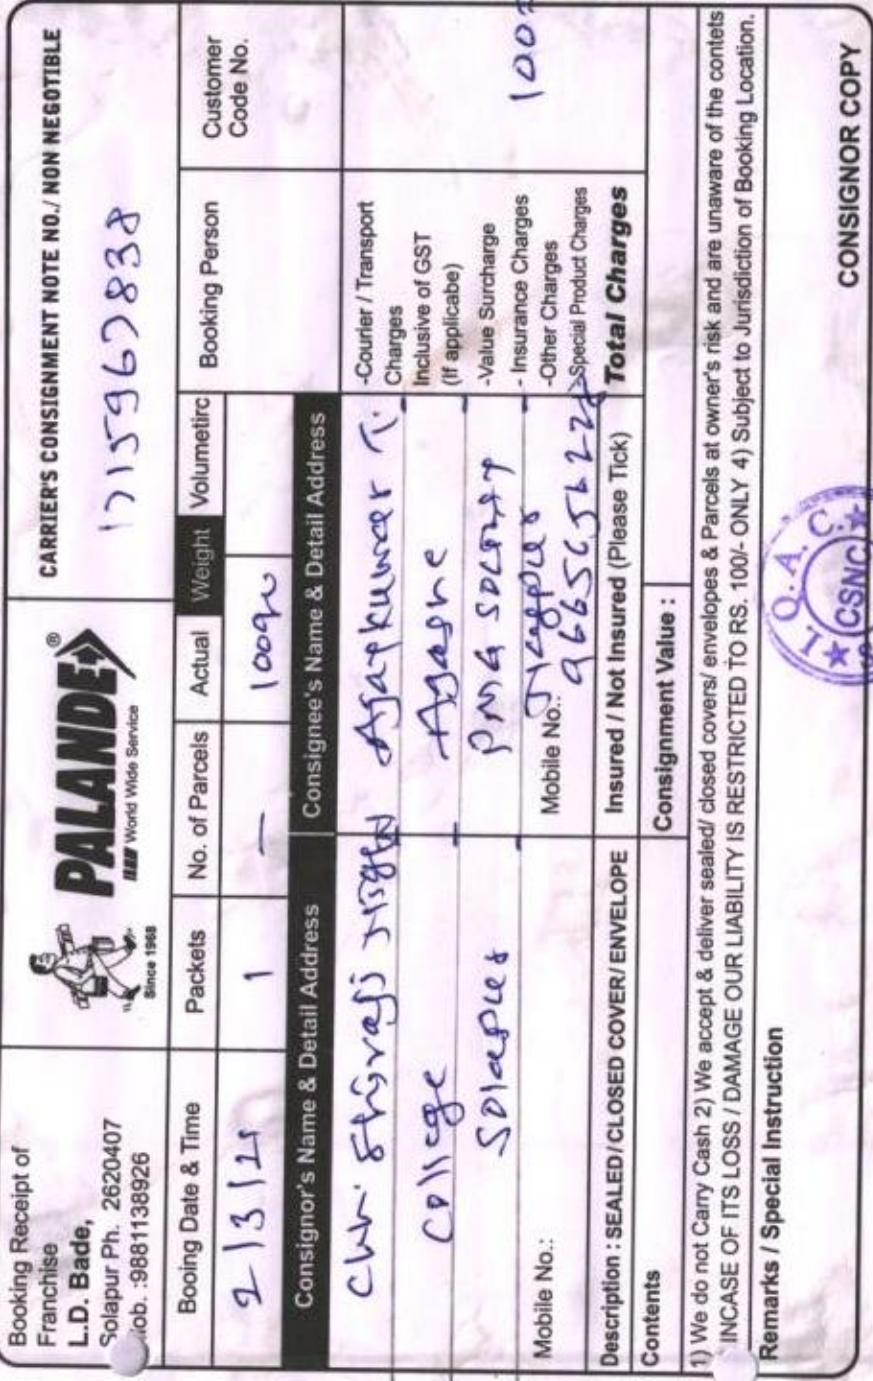 Booking Receipt of
Franchise
L.D. Bade,
Solapur Ph. 2620407
Mob. :9881138926
PALANDE®
World Wide Service
Since 1968
CARRIER'S CONSIGNMENT NOTE NO./ NON NEGOTIBLE
1715967838
Booing Date & Time
Packets
No. of Parcels
Actual
Weight
Volumetirc
Booking Person
Customer
Code No.
1
—
Consignor's Name & Detail Address
Consignee's Name & Detail Address
Chh. Shivaji Night
College
Solapur
Ajaykumar T.
Agashe
Mobile No.:
Mobile No.:
-Courier / Transport
Charges
Inclusive of GST
(If applicabe)
-Value Surcharge
- Insurance Charges
-Other Charges
-Special Product Charges
Description : SEALED/CLOSED COVER/ ENVELOPE
Insured / Not Insured (Please Tick)
Total Charges
Contents
Consignment Value :
1) We do not Carry Cash 2) We accept & deliver sealed/ closed covers/ envelopes & Parcels at owner's risk and are unaware of the contets
INCASE OF ITS LOSS / DAMAGE OUR LIABILITY IS RESTRICTED TO RS. 100/- ONLY 4) Subject to Jurisdiction of Booking Location.
Remarks / Special Instruction
I. Q. A. C.
CSNC
CONSIGNOR COPY